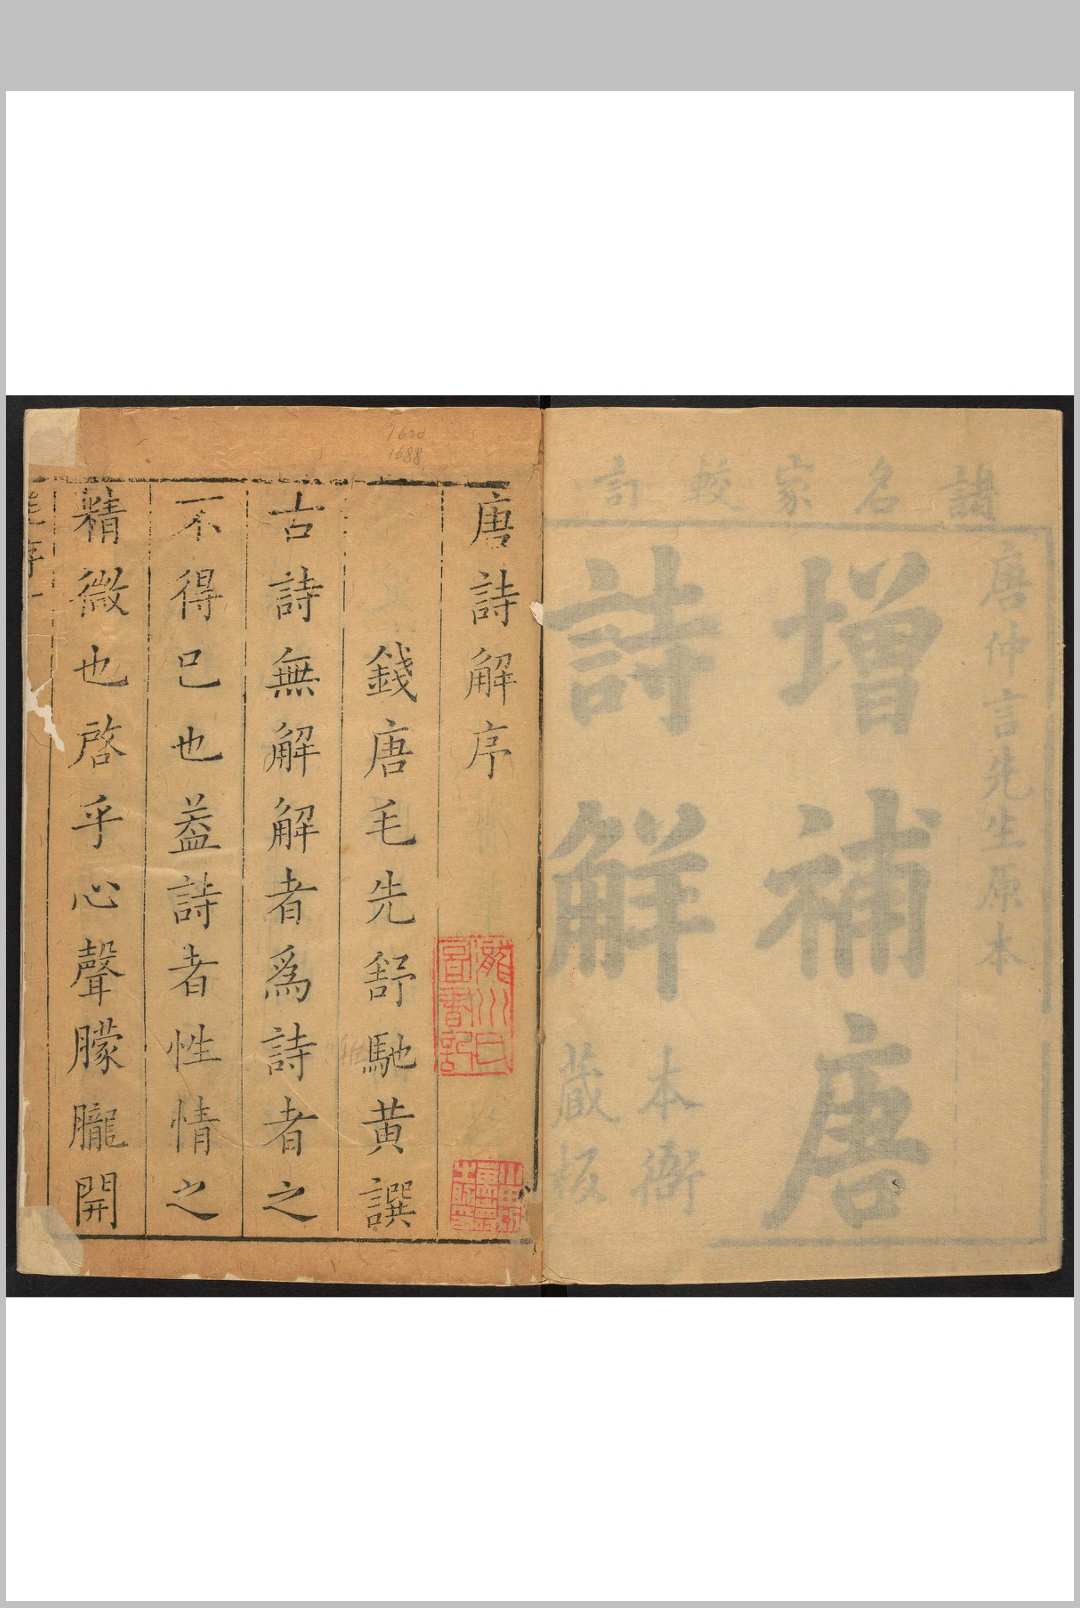 諸名家較訂
唐仲言先生原本
增補唐
詩解
本衙
藏板
唐詩解序
錢唐毛先舒馳黄譔
古詩無解解者為詩者之
不得已也葢詩者性情之
精微也啓乎心聲朦朧開
9620
1688